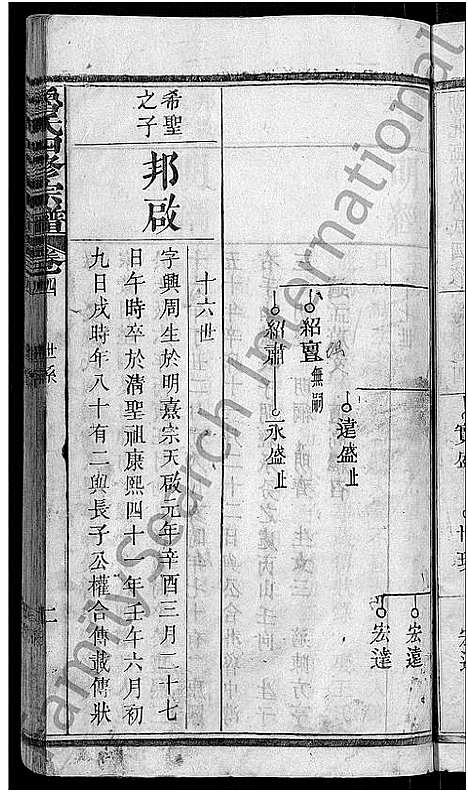 宏遠
宏達
遠盛止
紹亶無嗣
紹肅
永盛止
十六世
希聖之子
邦啟
字興周生於明熹宗天啟元年辛酉三月二十七
日午時卒於清聖祖康熙四十一年壬午六月初
九日戌時年八十有二與長子公權合傳載傳狀
氏四修宗譜
卷四
世系
二
FamilySearch International